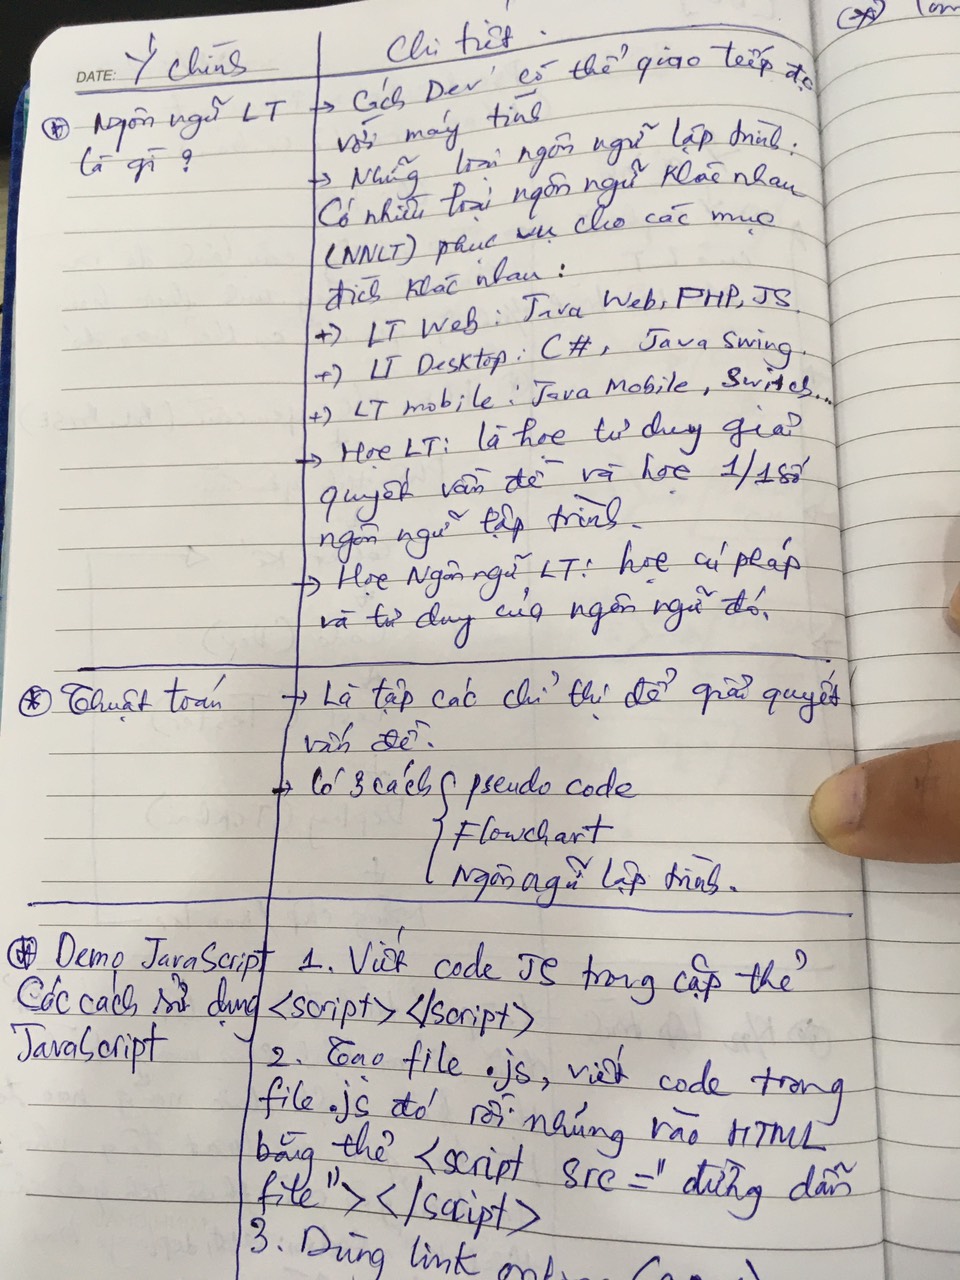 DATE: Ý chính
Chi tiết.
⊛ Ngôn ngữ LT
là gì?
→ Cách Dev có thể giao tiếp đc
với máy tính
→ Những loại ngôn ngữ lập trình:
Có nhiều loại ngôn ngữ khác nhau
(NNLT) phục vụ cho các mục
đích khác nhau:
+) LT Web: Java Web, PHP, JS.
+) LT Desktop: C#, Java Swing.
+) LT mobile: Java Mobile, Switch...
→ Học LT: là học tư duy giải
quyết vấn đề và học 1/1 số
ngôn ngữ lập trình.
→ Học Ngôn ngữ LT: học cú pháp
và tư duy của ngôn ngữ đó.
⊛ Thuật toán
→ Là tập các chỉ thị để giải quyết
vấn đề.
→ Có 3 cách { pseudo code
Flowchart
Ngôn ngữ lập trình.
⊛ Demo JavaScript
Các cách sử dụng
JavaScript
1. Viết code JS trong cặp thẻ
<script></script>
2. Tạo file .js, viết code trong
file .js đó rồi nhúng vào HTML
bằng thẻ <script src="đường dẫn
file"></script>
3. Dùng link